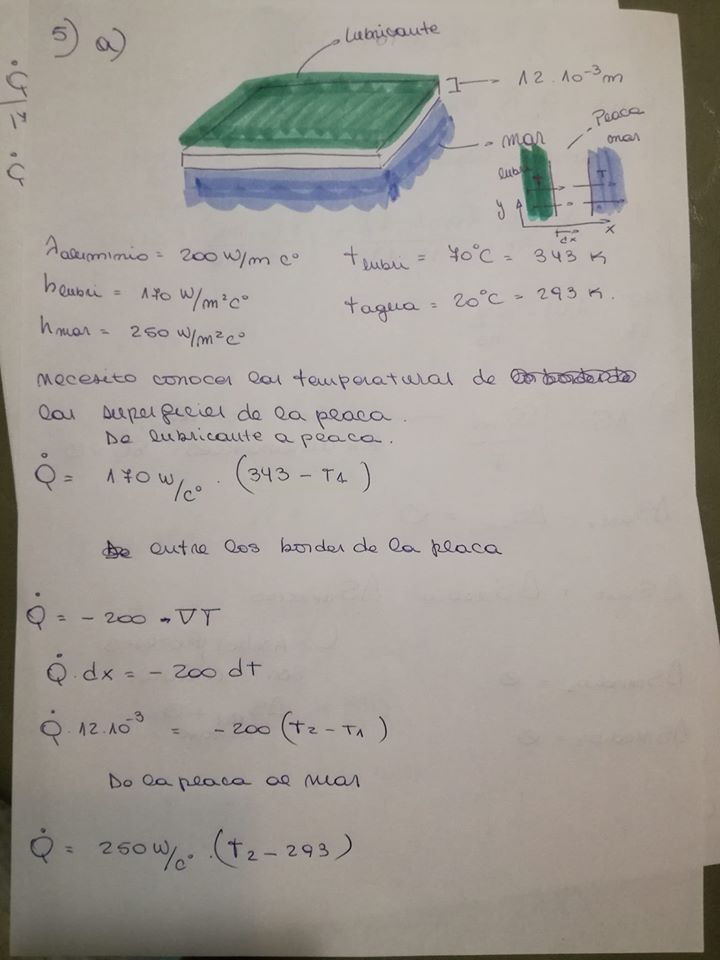 5) a)
Lubricante
12.10⁻³m
mar
Placa
mar
lubri
T
T
y
x
dx
λaluminio = 200 W/m c°
hlubri = 170 W/m²c°
hmar = 250 W/m²c°
tlubri = 70°C = 343 K
tagua = 20°C = 293 K.
necesito conocer las temperaturas de
las superficies de la placa.
De lubricante a placa.
Q̇ = 170 W/c° . (343 - T1)
entre los bordes de la placa
Q̇ = - 200 · ∇T
Q̇ . dx = - 200 dt
Q̇ . 12.10⁻³ = - 200 (T2 - T1)
De la placa al mar
Q̇ = 250 W/c° . (T2 - 293)